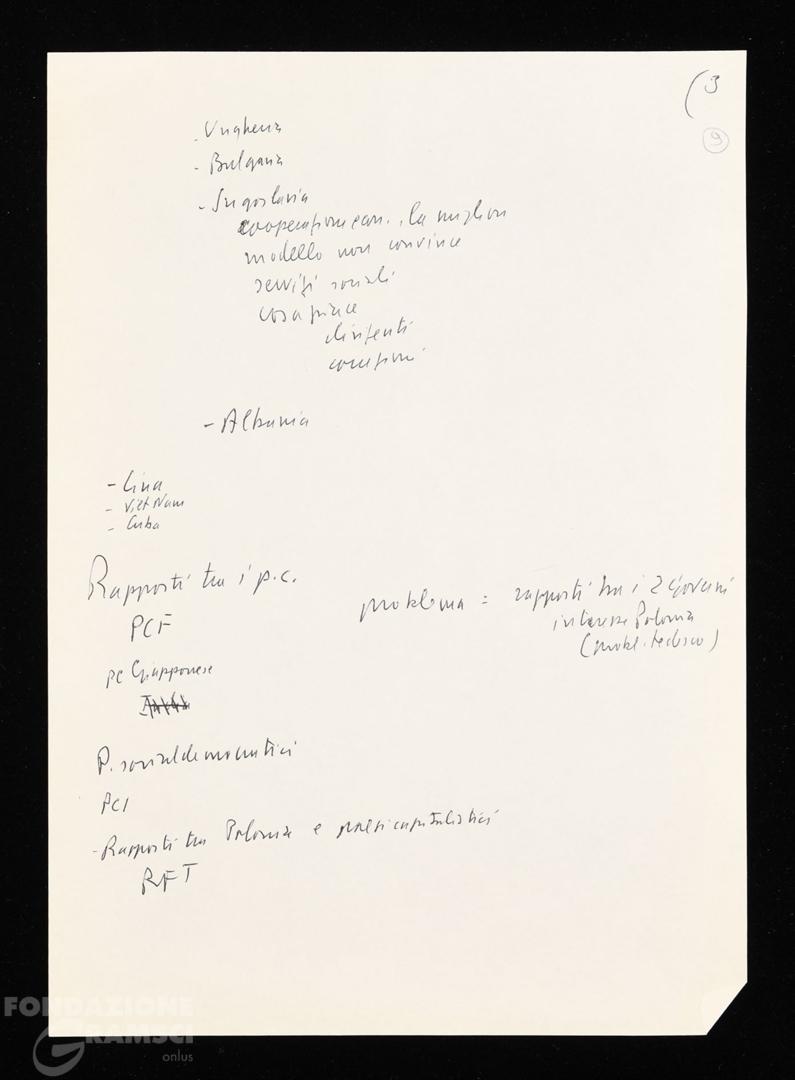 (3
9
- Ungheria
- Bulgaria
- Jugoslavia
cooperazione econ. , la miglior
modello non convince
servizi sociali
cosa piace
dirigenti
concezioni
- Albania
- Cina
- Viet Nam
- Cuba
Rapporti tra i p.c.
PCF
problema = rapporti tra i 2 governi
interesse Polonia
(probl. tedesco)
PC Giapponese
P. socialdemocratici
PCI
- Rapporti tra Polonia e paesi capitalistici
RFT
FONDAZIONE
GRAMSCI
onlus